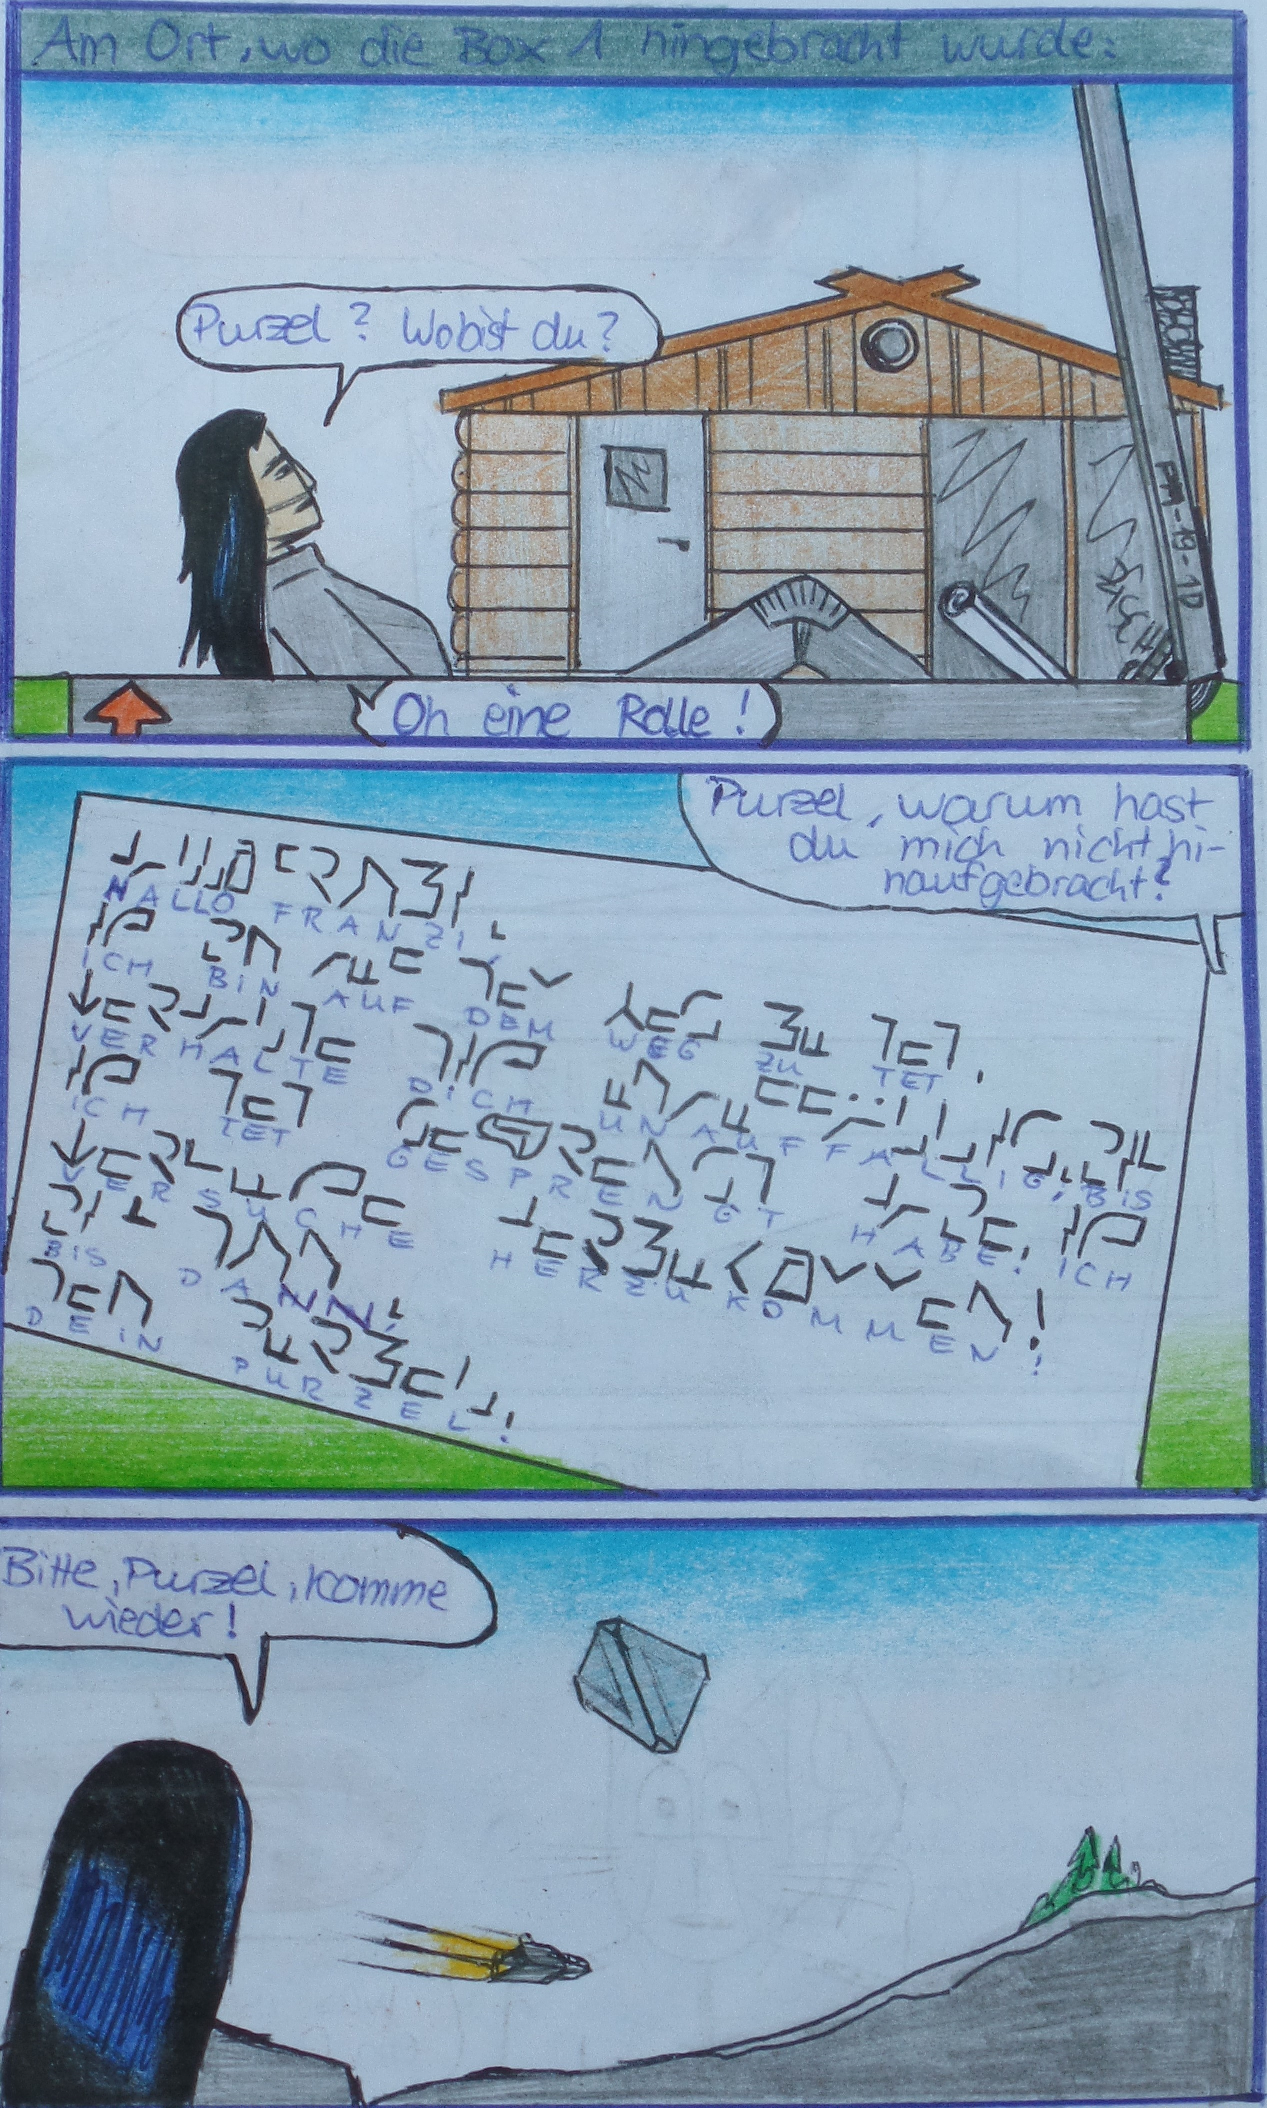 Am Ort, wo die Box 1 hingebracht wurde:
Purzel? Wo bist du?
PM-19-1D
Oh eine Rolle!
Purzel, warum hast
du mich nicht hi-
naufgebracht?
HALLO FRANZI,
ICH BIN AUF DEM WEG ZU TET.
VERHALTE DICH UNAUFFÄLLIG, BIS
ICH TET GESPRENGT HABE. ICH
VERSUCHE HERZUKOMMEN!
BIS DANN,
DEIN PURZEL!
Bitte, Purzel, komme
wieder!